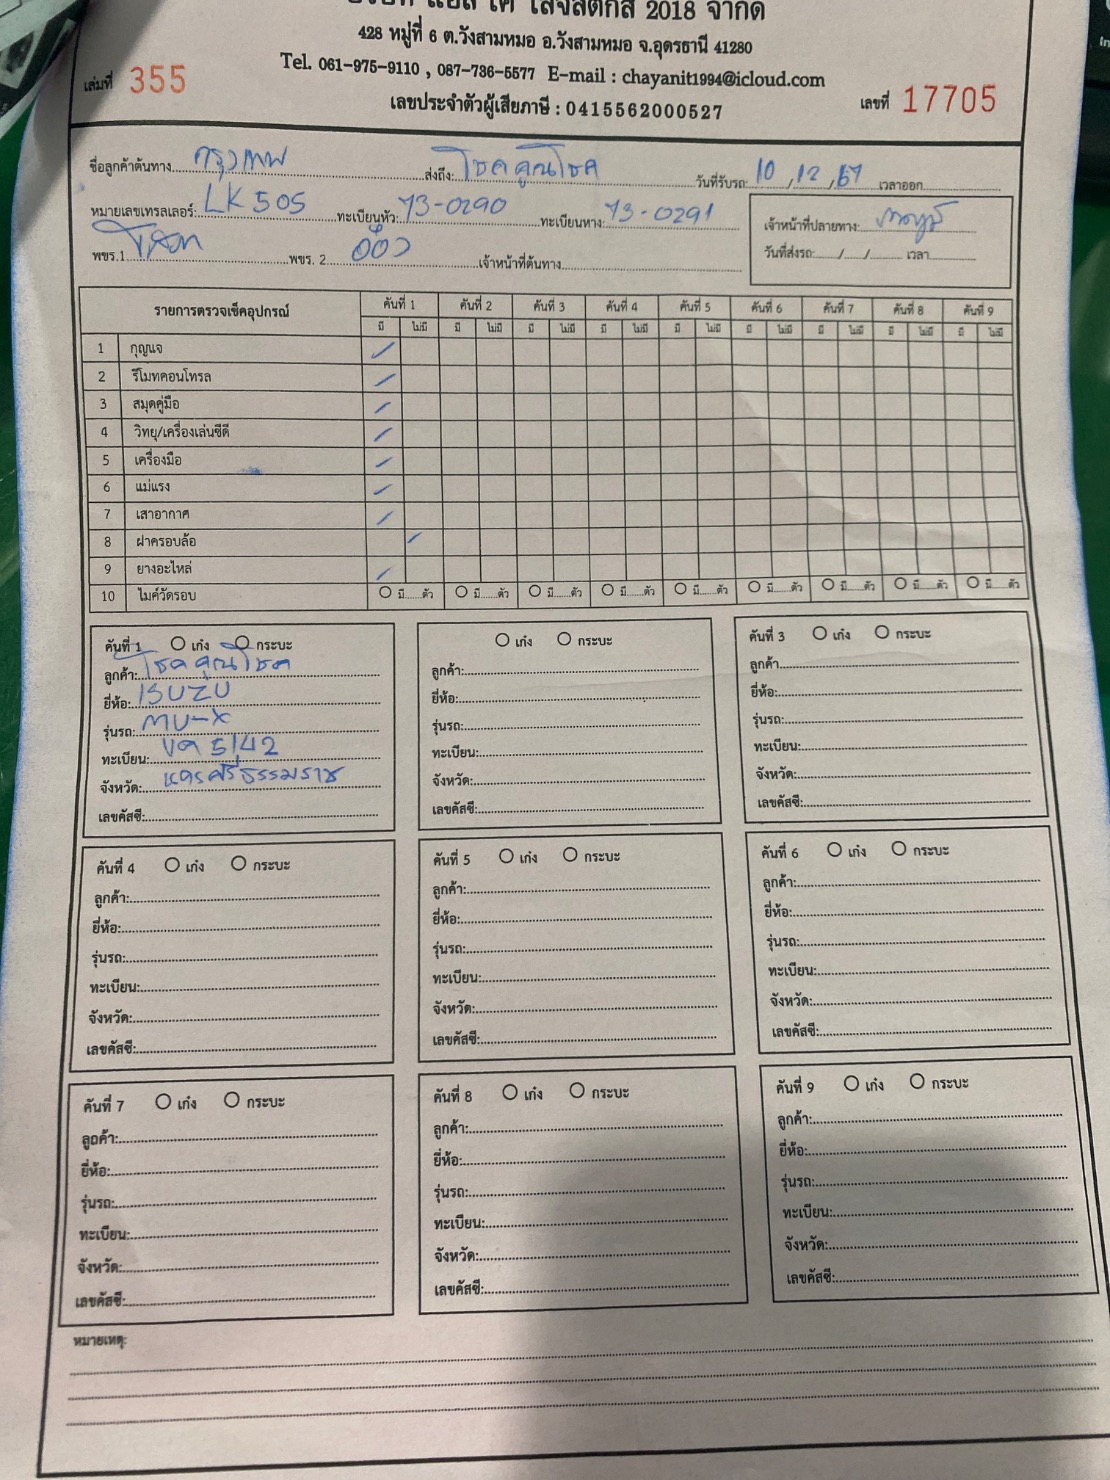 บริษัท แอล เค โลจิสติกส์ 2018 จำกัด
428 หมู่ที่ 6 ต.วังสามหมอ อ.วังสามหมอ จ.อุดรธานี 41280
Tel. 061-975-9110 , 087-736-5577 E-mail : chayanit1994@icloud.com
เล่มที่ 355
เลขประจำตัวผู้เสียภาษี : 0415562000527
เลขที่ 17705
ชื่อลูกค้าต้นทาง กรุงเทพ ส่งถึง: โชคคูณโชค วันที่รับรถ: 10 , 12 , 67 เวลาออก
หมายเลขเทรลเลอร์: LK 505 ทะเบียนหัว: 73-0290 ทะเบียนหาง: 73-0291
เจ้าหน้าที่ปลายทาง:
พขร.1 พขร. 2 เจ้าหน้าที่ต้นทาง
วันที่ส่งรถ: / / เวลา
รายการตรวจเช็คอุปกรณ์ คันที่ 1 คันที่ 2 คันที่ 3 คันที่ 4 คันที่ 5 คันที่ 6 คันที่ 7 คันที่ 8 คันที่ 9
มี ไม่มี มี ไม่มี มี ไม่มี มี ไม่มี มี ไม่มี มี ไม่มี มี ไม่มี มี ไม่มี มี ไม่มี
1 กุญแจ
2 รีโมทคอนโทรล
3 สมุดคู่มือ
4 วิทยุ/เครื่องเล่นซีดี
5 เครื่องมือ
6 แม่แรง
7 เสาอากาศ
8 ฝาครอบล้อ
9 ยางอะไหล่
10 ไมค์วัดรอบ มี ตัว มี ตัว มี ตัว มี ตัว มี ตัว มี ตัว มี ตัว มี ตัว มี ตัว
คันที่ 1 เก๋ง กระบะ
ลูกค้า: โชคคูณโชค
ยี่ห้อ: ISUZU
รุ่นรถ: MU-X
ทะเบียน: ขค 5142
จังหวัด: นครศรีธรรมราช
เลขคัสซี:
เก๋ง กระบะ
ลูกค้า:
ยี่ห้อ:
รุ่นรถ:
ทะเบียน:
จังหวัด:
เลขคัสซี:
คันที่ 3 เก๋ง กระบะ
ลูกค้า
ยี่ห้อ:
รุ่นรถ:
ทะเบียน:
จังหวัด:
เลขคัสซี:
คันที่ 4 เก๋ง กระบะ
ลูกค้า:
ยี่ห้อ:
รุ่นรถ:
ทะเบียน:
จังหวัด:
เลขคัสซี:
คันที่ 5 เก๋ง กระบะ
ลูกค้า:
ยี่ห้อ:
รุ่นรถ:
ทะเบียน:
จังหวัด:
เลขคัสซี:
คันที่ 6 เก๋ง กระบะ
ลูกค้า:
ยี่ห้อ:
รุ่นรถ:
ทะเบียน:
จังหวัด:
เลขคัสซี:
คันที่ 7 เก๋ง กระบะ
ลูกค้า:
ยี่ห้อ:
รุ่นรถ:
ทะเบียน:
จังหวัด:
เลขคัสซี:
คันที่ 8 เก๋ง กระบะ
ลูกค้า:
ยี่ห้อ:
รุ่นรถ:
ทะเบียน:
จังหวัด:
เลขคัสซี:
คันที่ 9 เก๋ง กระบะ
ลูกค้า:
ยี่ห้อ:
รุ่นรถ:
ทะเบียน:
จังหวัด:
เลขคัสซี:
หมายเหตุ: